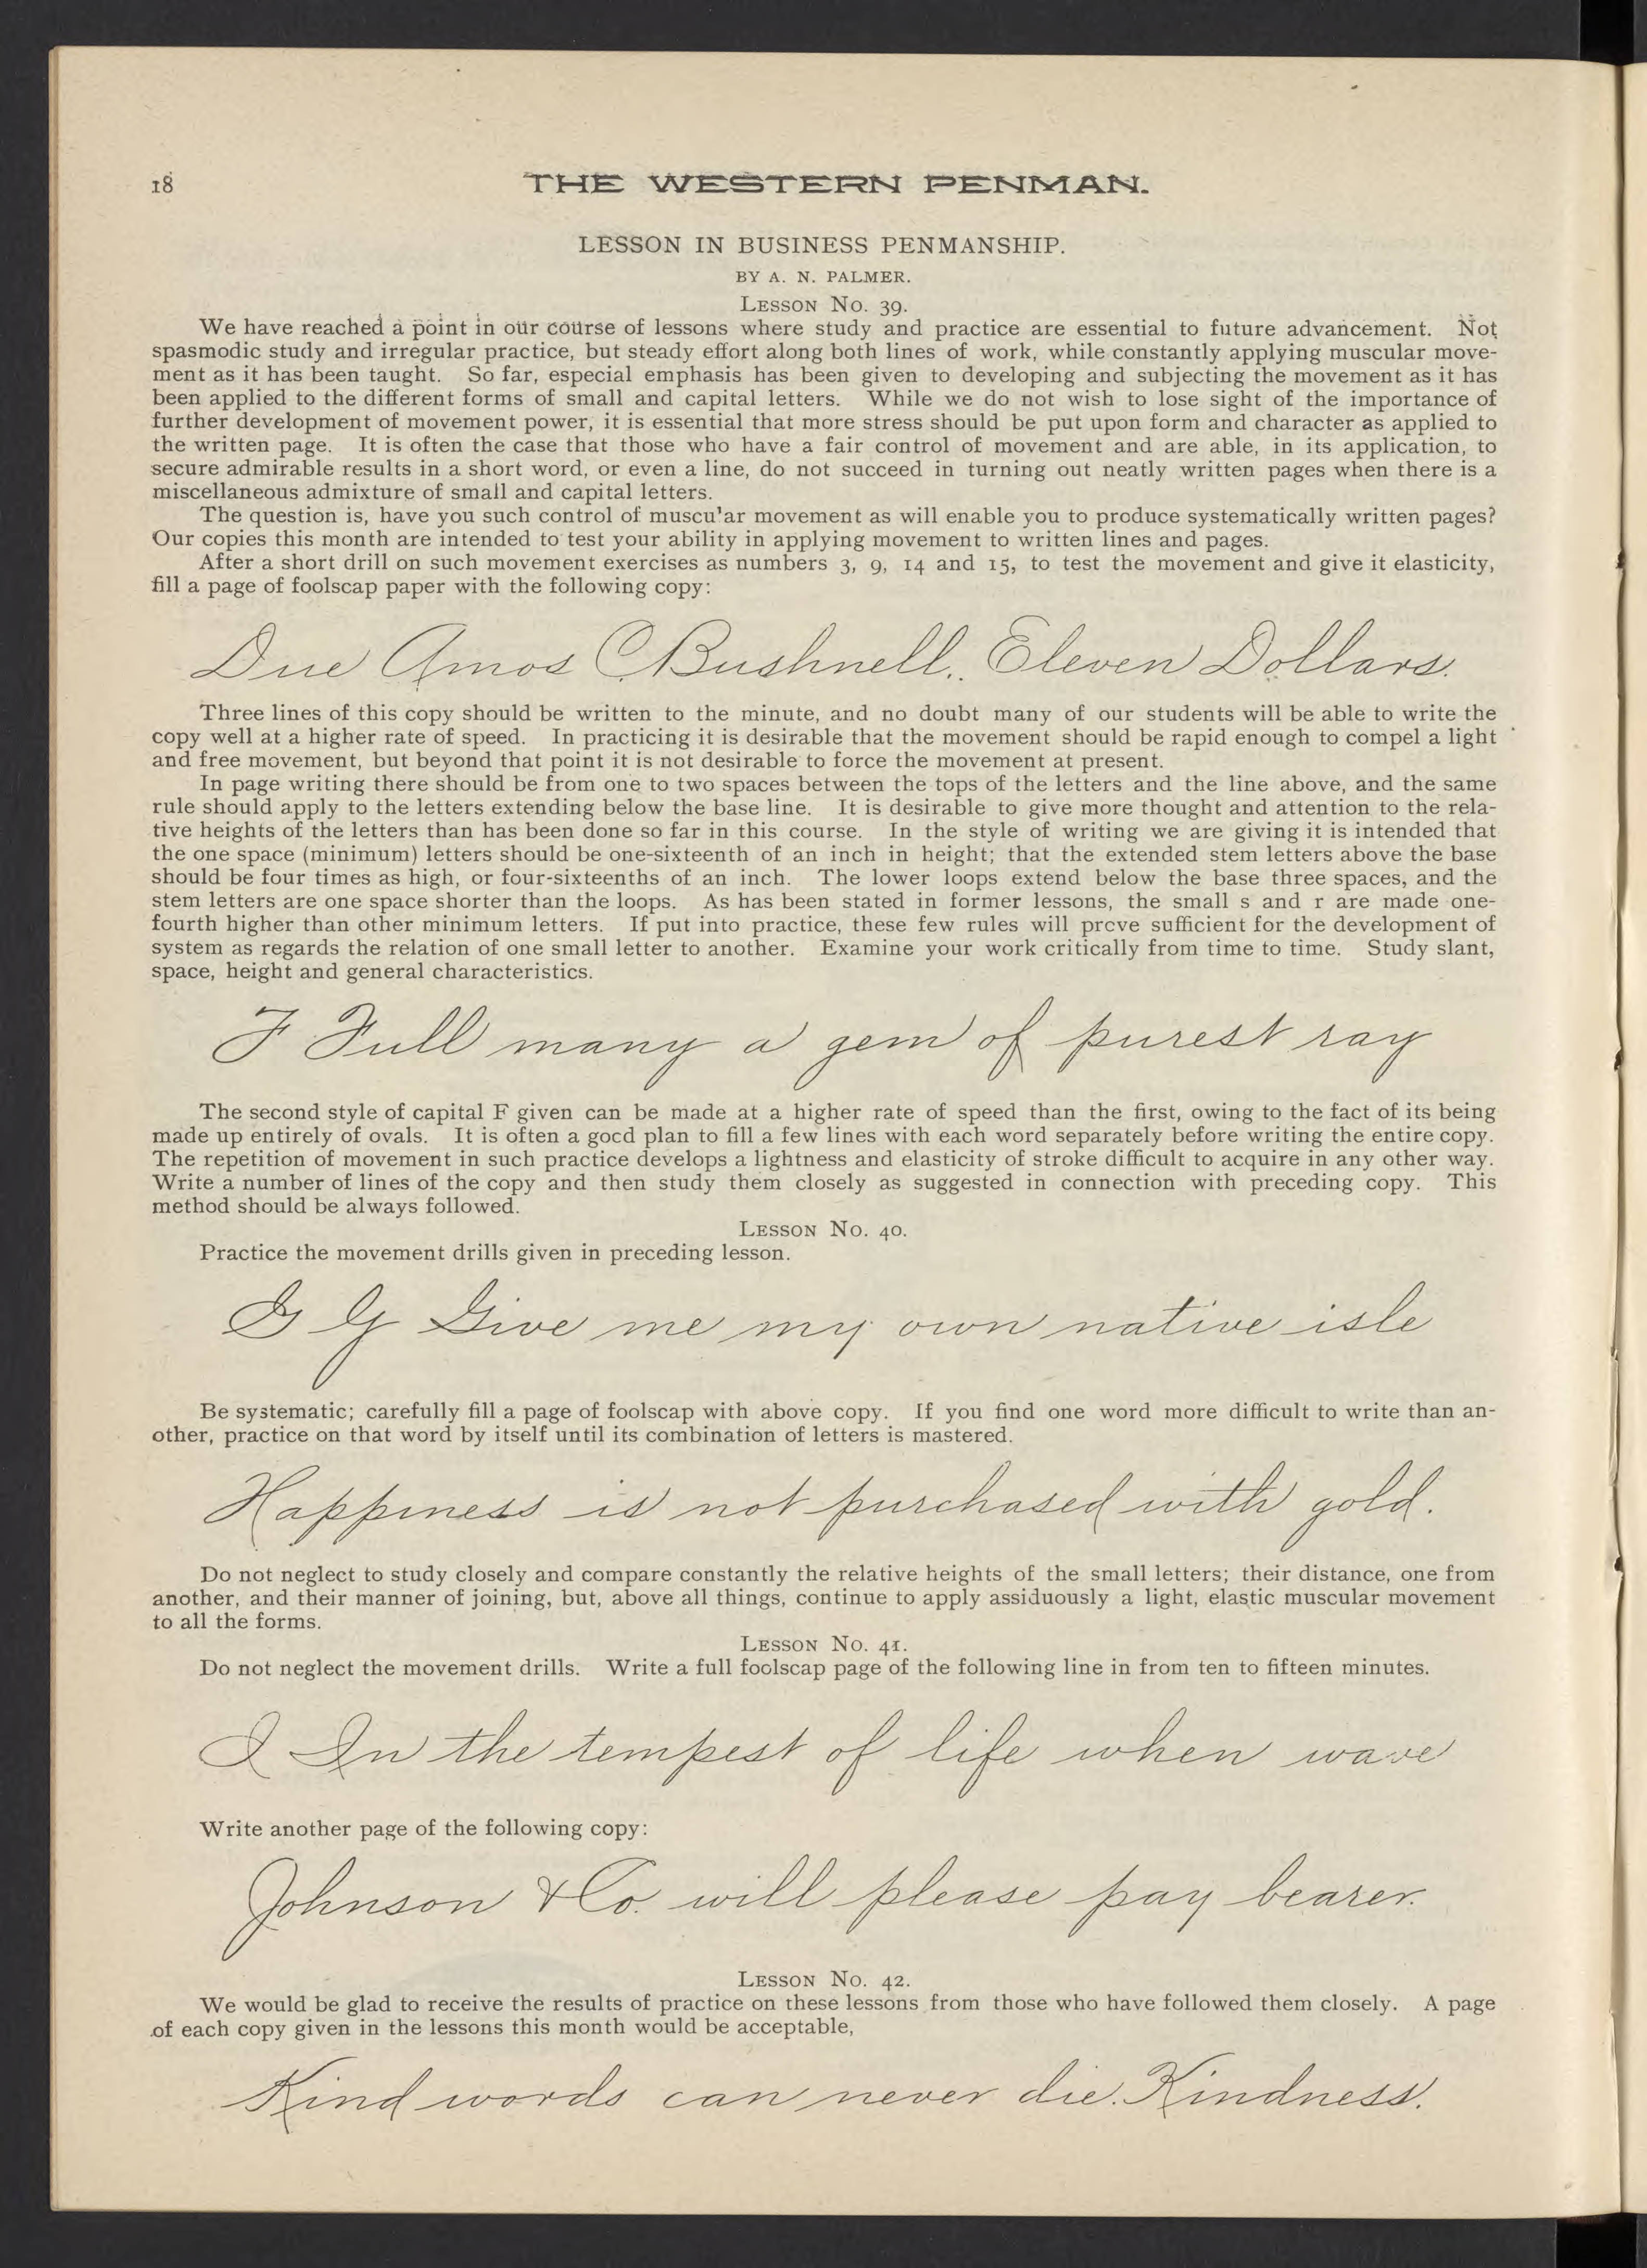 18
THE WESTERN PENMAN.
LESSON IN BUSINESS PENMANSHIP.
BY A. N. PALMER.
LESSON NO. 39.
We have reached a point in our course of lessons where study and practice are essential to future advancement. Not
spasmodic study and irregular practice, but steady effort along both lines of work, while constantly applying muscular move-
ment as it has been taught. So far, especial emphasis has been given to developing and subjecting the movement as it has
been applied to the different forms of small and capital letters. While we do not wish to lose sight of the importance of
further development of movement power, it is essential that more stress should be put upon form and character as applied to
the written page. It is often the case that those who have a fair control of movement and are able, in its application, to
secure admirable results in a short word, or even a line, do not succeed in turning out neatly written pages when there is a
miscellaneous admixture of small and capital letters.
The question is, have you such control of muscu'ar movement as will enable you to produce systematically written pages?
Our copies this month are intended to test your ability in applying movement to written lines and pages.
After a short drill on such movement exercises as numbers 3, 9, 14 and 15, to test the movement and give it elasticity,
fill a page of foolscap paper with the following copy:
Due Amos C. Bushnell, Eleven Dollars.
Three lines of this copy should be written to the minute, and no doubt many of our students will be able to write the
copy well at a higher rate of speed. In practicing it is desirable that the movement should be rapid enough to compel a light
and free movement, but beyond that point it is not desirable to force the movement at present.
In page writing there should be from one to two spaces between the tops of the letters and the line above, and the same
rule should apply to the letters extending below the base line. It is desirable to give more thought and attention to the rela-
tive heights of the letters than has been done so far in this course. In the style of writing we are giving it is intended that
the one space (minimum) letters should be one-sixteenth of an inch in height; that the extended stem letters above the base
should be four times as high, or four-sixteenths of an inch. The lower loops extend below the base three spaces, and the
stem letters are one space shorter than the loops. As has been stated in former lessons, the small s and r are made one-
fourth higher than other minimum letters. If put into practice, these few rules will prcve sufficient for the development of
system as regards the relation of one small letter to another. Examine your work critically from time to time. Study slant,
space, height and general characteristics.
F Full many a gem of purest ray
The second style of capital F given can be made at a higher rate of speed than the first, owing to the fact of its being
made up entirely of ovals. It is often a gocd plan to fill a few lines with each word separately before writing the entire copy.
The repetition of movement in such practice develops a lightness and elasticity of stroke difficult to acquire in any other way.
Write a number of lines of the copy and then study them closely as suggested in connection with preceding copy. This
method should be always followed.
LESSON NO. 40.
Practice the movement drills given in preceding lesson.
G G Give me my own native isle
Be systematic; carefully fill a page of foolscap with above copy. If you find one word more difficult to write than an-
other, practice on that word by itself until its combination of letters is mastered.
Happiness is not purchased with gold.
Do not neglect to study closely and compare constantly the relative heights of the small letters; their distance, one from
another, and their manner of joining, but, above all things, continue to apply assiduously a light, elastic muscular movement
to all the forms.
LESSON NO. 41.
Do not neglect the movement drills. Write a full foolscap page of the following line in from ten to fifteen minutes.
I In the tempest of life when wave
Write another page of the following copy:
Johnson & Co. will please pay bearer.
LESSON NO. 42.
We would be glad to receive the results of practice on these lessons from those who have followed them closely. A page
of each copy given in the lessons this month would be acceptable,
Kind words can never die. Kindness.